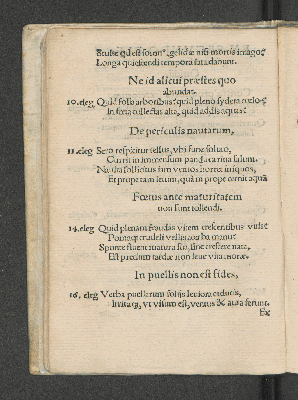 Stulte qd est somn⁹, gelidæ nisi mortis imago?
Longa quiescendi tempora fata dabunt.
Ne id alicui præstes quo
abundat.
10. eleg Quid folia arboribus? quid pleno sydera cœlo?
In freta collectas alta, quid addis aquas?
De periculis nautarum,
11. eleg Sero respicitur tellus, vbi fune soluto,
Currit in immensum panda carina salum.
Nauita sollicitus iam ventos horret iniquos,
Et prope tam letum, quã m prope cernit aquã
Fœtus ante maturitatem
non sunt tollendi.
14. eleg Quid plenam fraudas vitem crescentibus vuis?
Pomaq; crudeli vellis acerba manu?
Sponte fluent matura sua, sine crescere nata,
Est precium tardæ non leue vita moræ.
In puellis non est fides,
16. eleg Verba puellarum foliis leuiora caducis,
Irrita q;, vt visum est, ventus & aura ferunt.
Ex